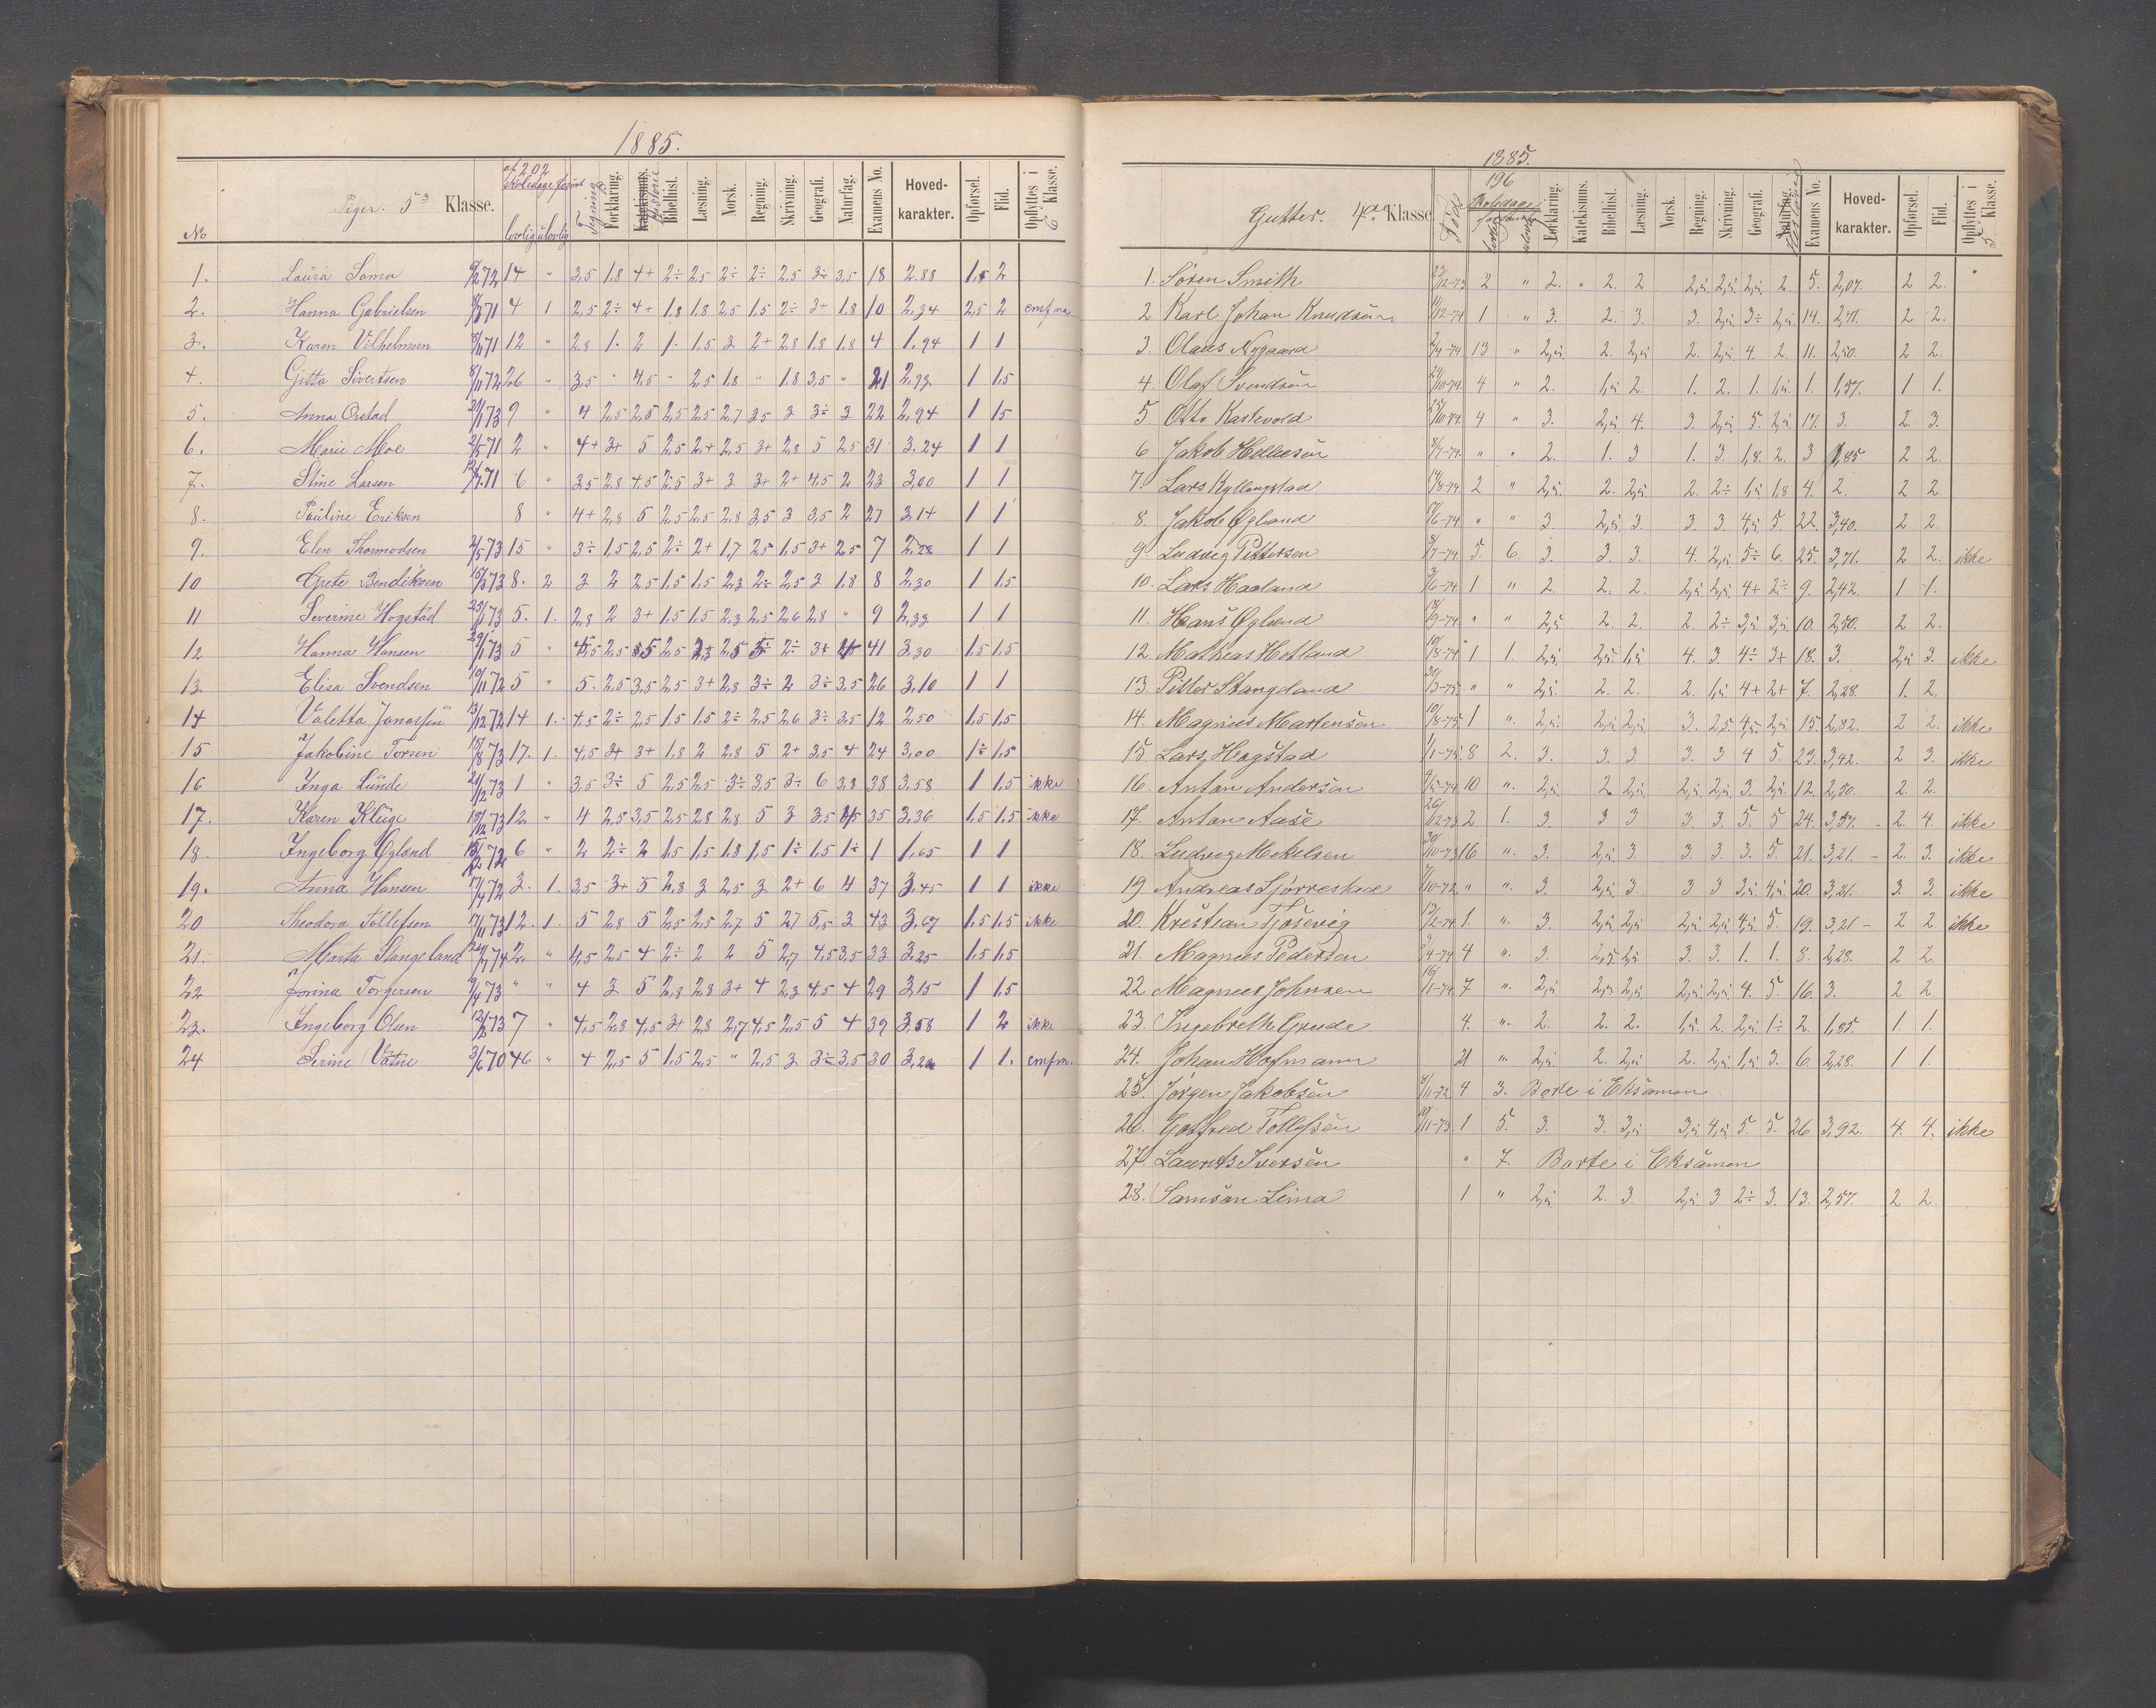 1885.
No Piger. 5 Klasse. af 202 skoledage forsømt lovlig ulovlig Tegning Forklaring. Katekismus. Historie Bibelhist. Læsning. Norsk. Regning. Skrivning. Geografi. Naturfag. Examens No. Hoved-karakter. Opførsel. Flid. Opflyttes i 6 Klasse.
1. Laura Soma 14 " 3,5 1,8 4+ 2÷ 2,5 2÷ 2÷ 2,5 3÷ 3,5 18 2,88 1,5 2
2. Hanna Gabrielsen 4 1 2,5 2÷ 4+ 1,8 1,8 2,5 1,5 2÷ 3+ 1,8 10 2,34 2,5 2
3. Karen Vilhelmsen 12 " 2,8 1. 2 1. 1,5 3 2+ 2,8 1,8 1,8 4 1,94 1 1
4. Gitta Sivertsen 8/11 72 26 " 3,5 " 4,5 - 2,5 1,8 " 1,8 3,5 " 21 2,93 1 1,5
5. Anna Orstad 9 " 4 2,5 2,5 2,5 2,5 2,7 3,5 3 3÷ 3 22 2,94 1 1,5
6. Marie Moe 2 " 4+ 3+ 5 2,5 2+ 2,5 3+ 2,8 5 2,5 31 3,24 1 1
7. Stine Larsen 6 " 3,5 2,8 4,5 2,5 3+ 3 3+ 2+ 4,5 2 23 3,00 1 1
8. Pauline Eriksen 8 " 4+ 2,8 5 2,5 2,5 2,8 3,5 3 3,5 2 27 3,14 1 1
9. Elen Thormodsen 2/5 73 15 " 3÷ 1,5 2,5 2÷ 2+ 1,7 2,5 1,5 3+ 2,5 7 1 1
10 Grete Bendiksen 8. 2 3 2 2,5 1,5 1,5 2,3 2÷ 2,5 3 1,8 8 2,30 1 1,5
11 Severine Hogstad 5. 1. 2,8 2 3+ 1,5 1,5 2,3 2,5 2,6 2,8 " 9 2,33 1 1
12 Hanna Hansen 29/1 73 5 " 41 3,30 1,5 1,5
13. Elisa Svendsen 10/11 72 5 " 5. 2,5 3,5 2,5 3+ 2,8 3÷ 2 3÷ 3,5 26 3,10 1 1
14 Valetta Jonassen 13/12 72 14 1. 4,5 2÷ 2,5 1,5 1,5 2÷ 2,5 2,6 3÷ 3,5 12 2,50 1,5 1,5
15 Jakobine Torsen 17. 1. 4,5 3+ 3+ 1,8 2 2,8 5 2+ 3,5 4 24 3,00 1÷ 1,5
16 Inga Lunde 1 " 3,5 3÷ 5 2,5 2,5 3÷ 3,5 3÷ 6 3,8 38 3,58 1 1,5 ikke
17. Karen Kluge 12. " 4 2,5 3,5 2,5 2,8 2,8 5 3 3,5 4,5 35 3,36 1,5 1,5 ikke
18 Ingeborg Ogland 6 " 2 2÷ 2 1,5 1,5 1,8 1,5 1÷ 1,5 1÷ 1 1,65 1 1
19. Anna Hansen 3. 1. 3,5 3+ 5 2,8 3 2,5 3 2+ 6 4 37 3,45 1 1 ikke
20 Theodora Tollefsen 17/11 73 12. 1. 5 2,8 5 2,5 2,5 2,7 5 2,7 5,5 3 43 3,67 1,5 1,5 ikke
21. Marta Stangeland 2. " 4,5 2,5 4 2÷ 2 2 5 2,7 4,5 3,5 33 3,25 1,5 1,5
22 Jorina Torgersen 9/4 73 " " 4 3 5 2,8 2,8 3+ 4 2,3 4,5 4 29 3,15 1 1,5
23. Ingeborg Olsen 7 " 4,5 2,8 4,5 3+ 2,8 2,7 4,5 2,5 5 4 39 3,58 1 2 ikke
24 Serine Vatne 3/6 70 46 " 4 2,5 5 1,5 2,5 " 2,5 3 3÷ 3,5 30 1 1.
1885.
Gutter. 4de Klasse. Född 196 Skoledage Forklaring. Katekismus. Bibelhist. Læsning. Norsk. Regning. Skrivning. Geografi. Naturfag. Examens No. Hoved-karakter. Opførsel. Flid. Opflyttes i 5 Klasse.
1. Søren Smith 2 " 2. " 2. 2 2,5. 2,5. 2,5. 2. 5. 2,07. 2 2.
2 Karl Johan Knudsen 11/12-74 1 " 3. 2. 3. 3. 2,5. 3÷ 2,5. 14. 2,71. 2 2.
3. Olaus Nygaard 13 " 2,5. 2. 2,5. 2. 2,5. 4. 2. 11. 2,50. 2 2.
4. Olaf Svendsen 4 " 2. 1,5 2. 1. 2. 1. 1,5. 1. 1,57. 1 1.
5 Otto Kartevold 4 " 3. 2,5. 4. 3. 2,5. 5. 2,5. 17. 3. 2 3.
6 Jakob Hellesen " " 2. 1. 3 1. 3. 1,8. 2. 3 1,85 2 2.
7. Lars Kyllingstad 2 " 2,5. 2. 2,5. 2. 2÷ 1,5 1,8 4. 2. 2 2.
8. Jakob Øgland " " 3. 2,5. 3. 3. 3. 4,5. 5. 22. 3,40. 2 2.
9. Ludvig Pettersen 5. 6. 3. 3. 3. 4. 2,5. 5÷ 6. 25. 3,71. 2 2. ikke
10. Lars Haaland 1 " 2. 2. 2. 2,5. 2,5. 4+ 2÷ 9. 2,42. 1 1.
11. Hans Øgland " " 2,5. 2. 2. 2. 2÷ 3,5. 3,5. 10. 2,50. 2 2.
12 Mathias Hetland 1 1. 2,5. 2,5. 1,5 4. 3. 4÷ 3+ 18. 3. 2,5 3. ikke
13. Pitter Stangeland " " 2,5. 2. 2. 2. 1,5 4+ 2+ 7. 2,28. 1. 2.
14. Magnus Martensen 1 ". 2,5. 2,5. 2,5. 3. 2,5 4,5. 2,5. 15. 2,82. 2 2. ikke
15 Lars Hogstad 8 2. 3. 3. 3. 3. 3 4 5. 23. 3,42. 2 3. ikke
16. Anton Andersen 10 ". 2,5. 2. 2,5. 2,5. 2,5. 3. 2,5. 12. 2,50. 2 2.
17. Anton Aase 26/12-73 2 1. 3. 3 3 3. 3. 5. 5 24. 3,57. - 2. 4. ikke
18. Ludvig Mikelsen 16 ". 3. 2,5. 3. 3. 3. 3. 5. 21. 3,21. - 2. 3. ikke
19 Andreas Sjørrestad " ". 3. 2,5. 3. 3 3 3,5. 4,5. 20. 3,21. 3. 3. ikke
20. Krestian Tjøsevig 1. ". 3. 2,5. 2,5. 2,5. 2,5. 4,5. 5. 19. 3,21 - 2 2. ikke
21. Magnus Pedersen 4 ". 3. 2,5. 2,5. 3. 3. 1. 1. 8. 2,28. 2 2.
22. Magnus Johnsen 7 ". 2,5. 2,5. 2,5. 2,5. 2,5. 4. 5. 16. 3. 2 2.
23. Ingebreth Grude 4. ". 2. 2. 2. 1,5. 2. 2,5. 1÷ 2. 1,85. 1. 1.
24. Johan Hofmann 21 ". 2,5. 2. 2,5. 2. 2,5. 1,5. 3. 6. 2,28. 1 1.
25. Jørgen Jakobsen 4 3. Borte i Eksamen
26. Gotfred Tollefsen 1 5. 3. 3. 3,5. 3,5. 4,5. 5. 5. 26 3,92. 4. 4. ikke
27. Laurits Iversen " 7. Borte i Eksamen
28. Samson Lima 1 " 2,5. 2. 3. 2,5. 3 2÷ 3. 13. 2,57. 2 2.